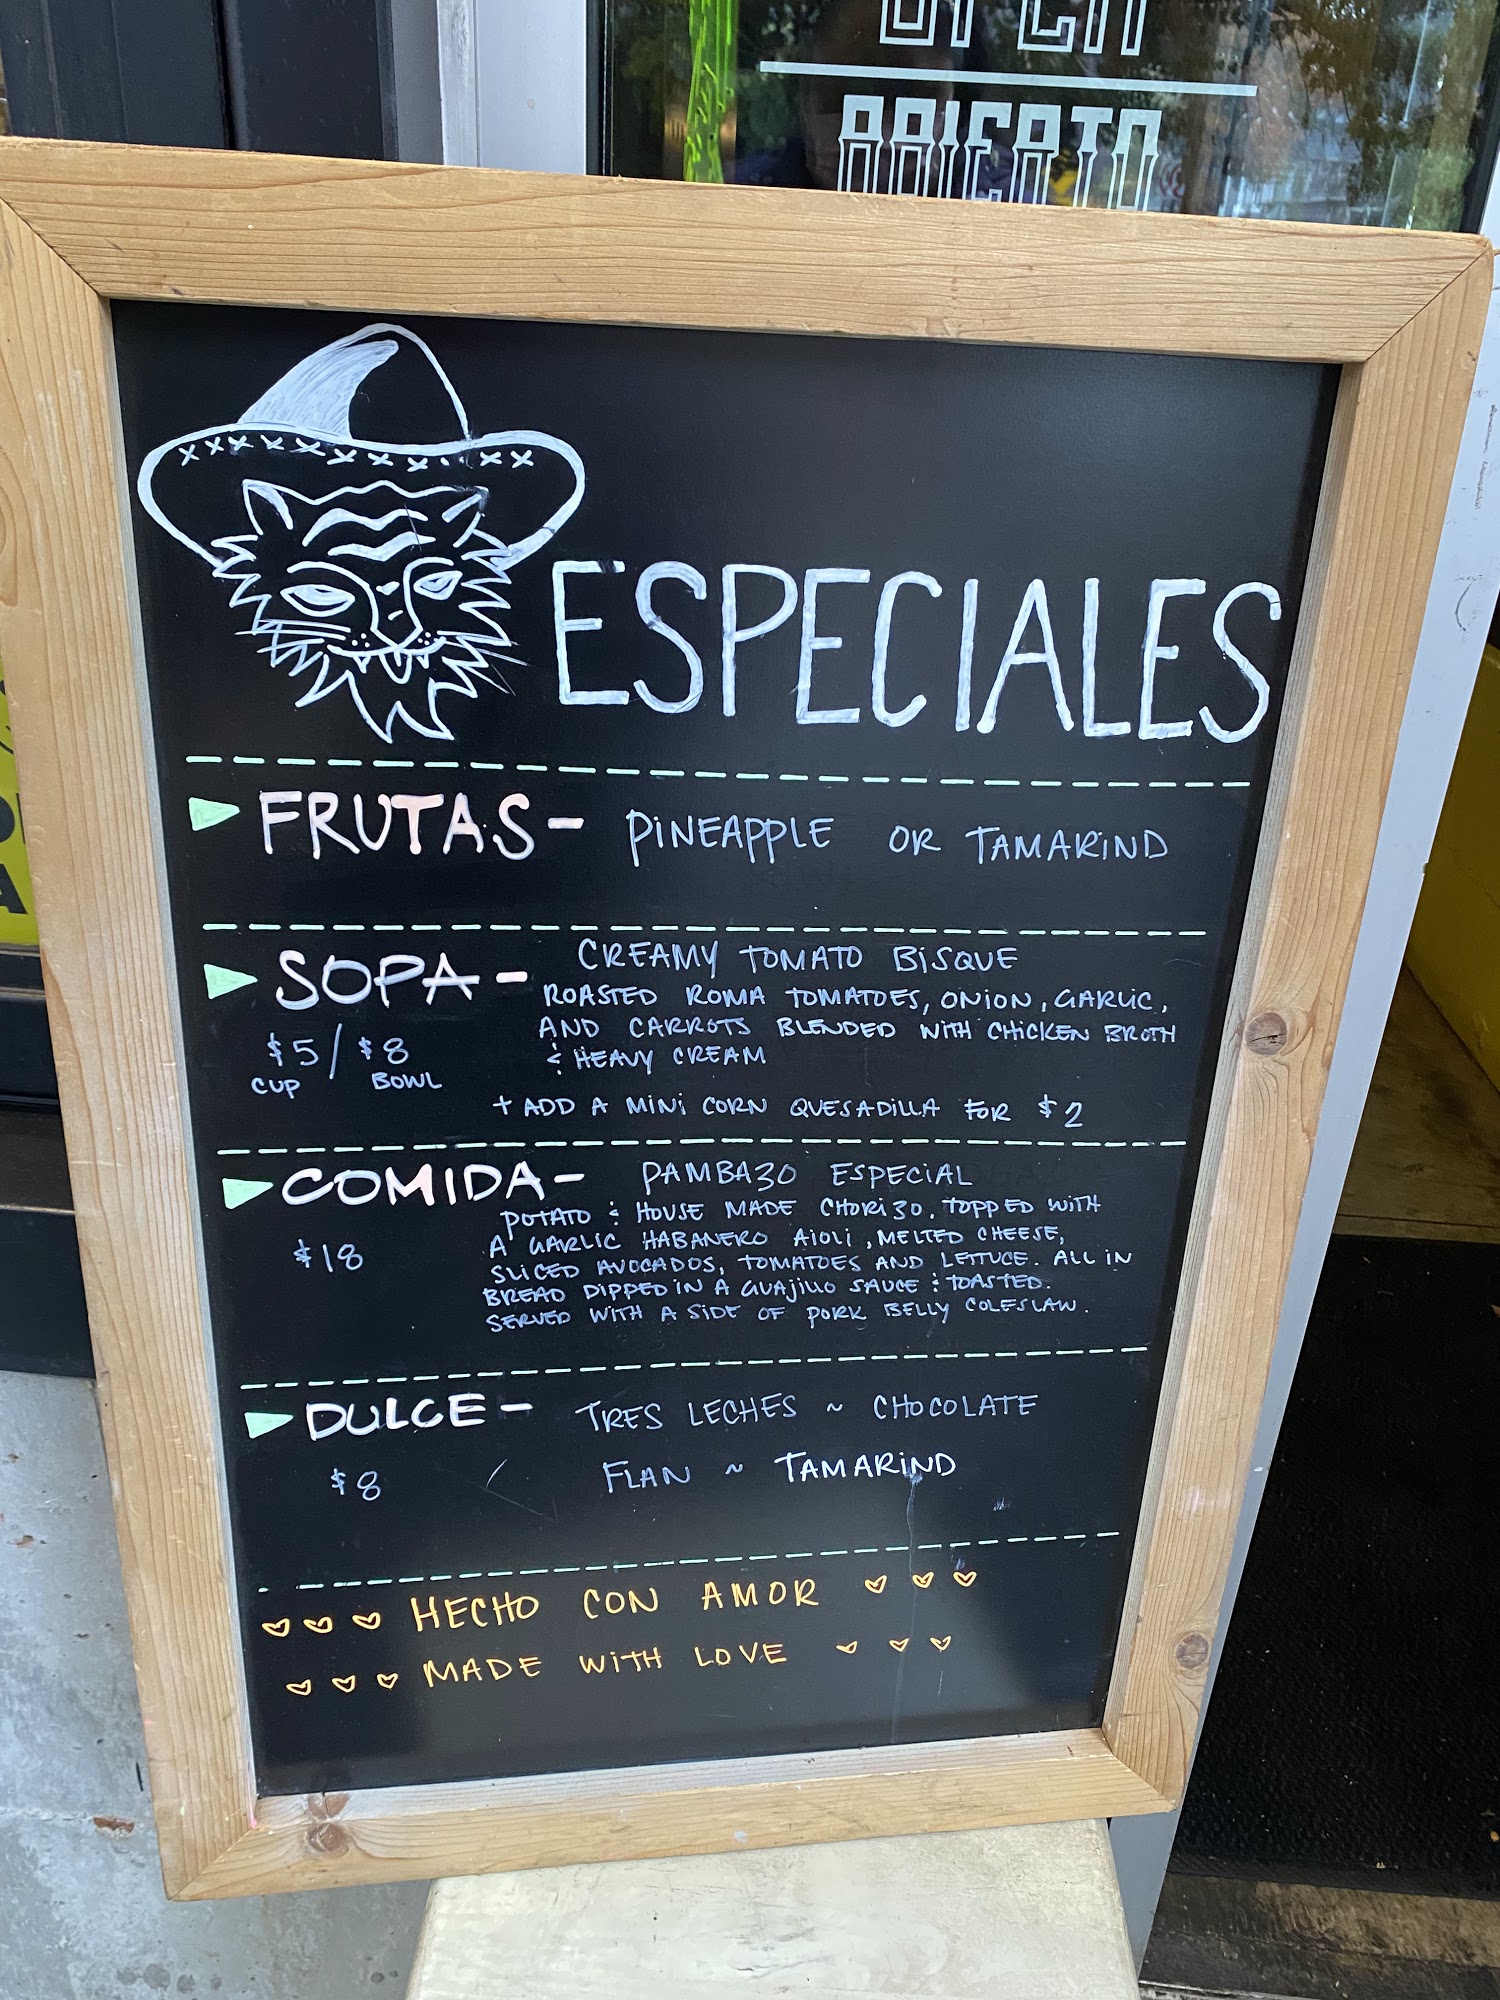 OPEN
ABIERTO
ESPECIALES
FRUTAS - PINEAPPLE OR TAMARIND
SOPA - CREAMY TOMATO BISQUE
ROASTED ROMA TOMATOES, ONION, GARLIC,
AND CARROTS BLENDED WITH CHICKEN BROTH
& HEAVY CREAM
$5 / $8
CUP BOWL
+ ADD A MINI CORN QUESADILLA FOR $2
COMIDA - PAMBAZO ESPECIAL
$18
POTATO & HOUSE MADE CHORIZO. TOPPED WITH
A GARLIC HABANERO AIOLI, MELTED CHEESE,
SLICED AVOCADOS, TOMATOES AND LETTUCE. ALL IN
BREAD DIPPED IN A GUAJILLO SAUCE & TOASTED.
SERVED WITH A SIDE OF PORK BELLY COLESLAW.
DULCE - TRES LECHES ~ CHOCOLATE
$8 FLAN ~ TAMARIND
HECHO CON AMOR
MADE WITH LOVE